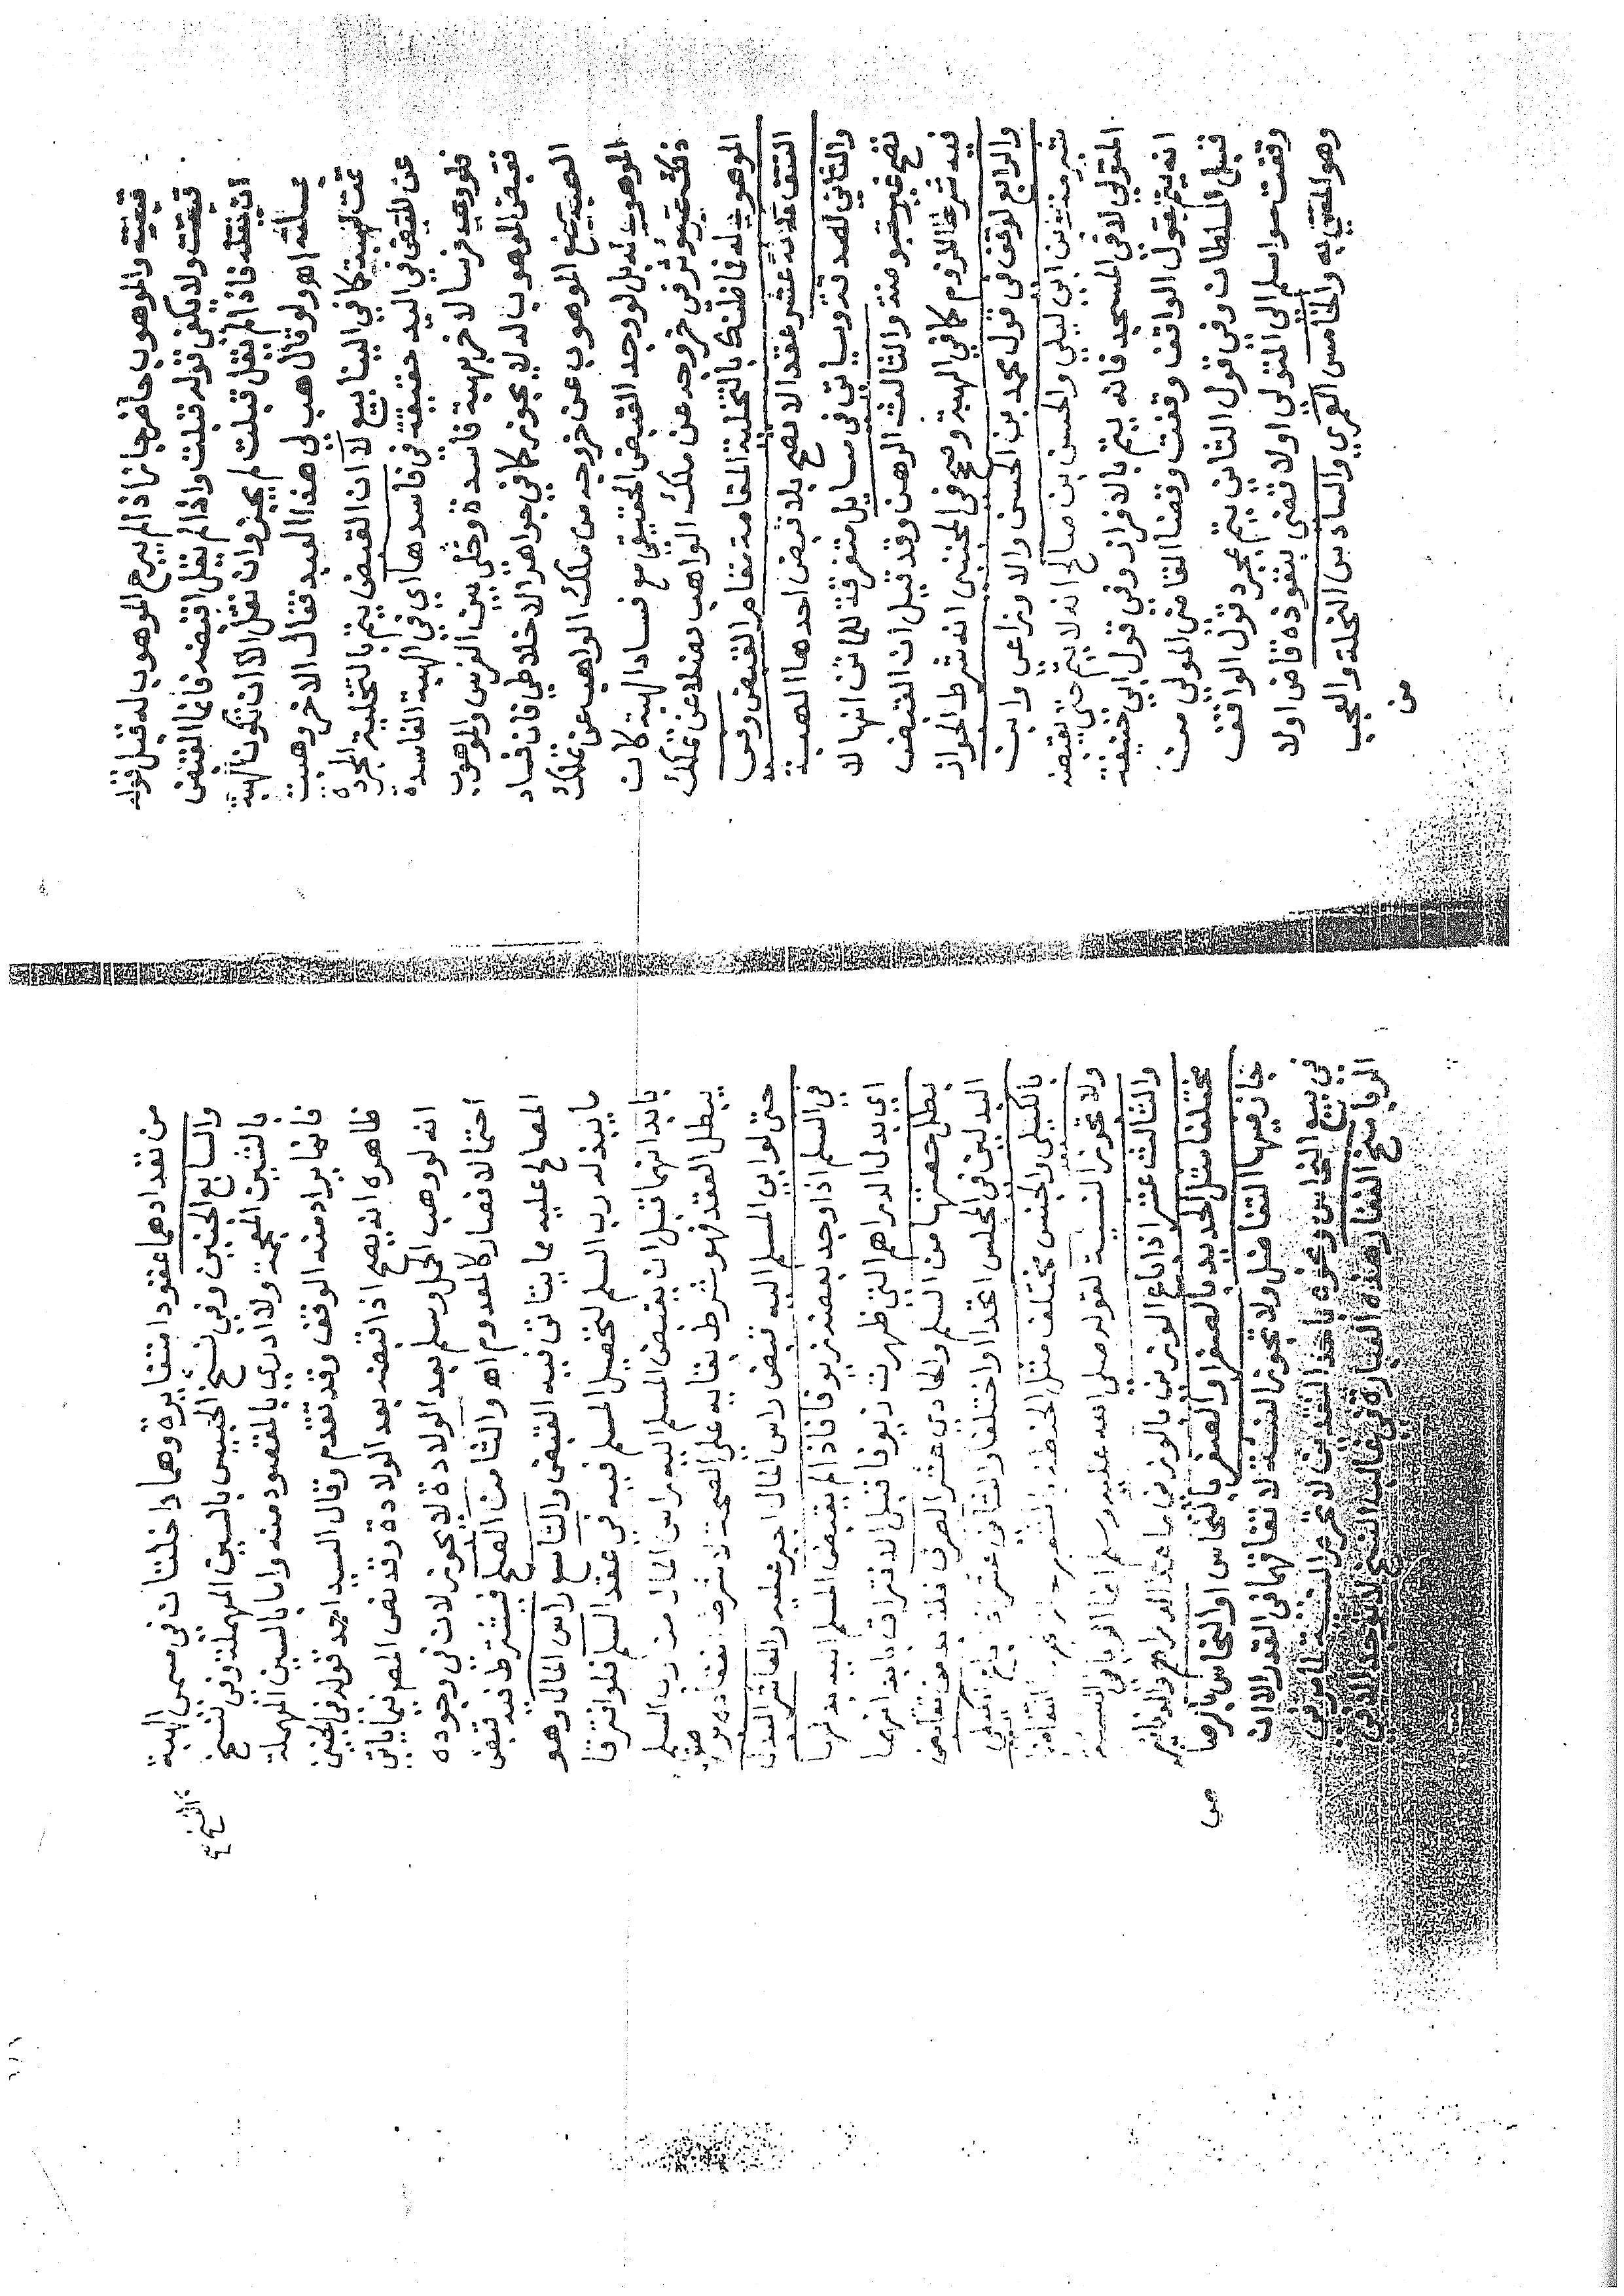 قبضته والموهوب حاضر جاز اذا لم يبرح الموهوب له قبل قوله
قبضت ولا يكفي قوله قبلت واذا لم يقل اقبضه فانما القبض
ان ينقله فاذا لم يقل قبلت لم يجز وان نقل الا ان تكون الهبة
بمسئلته اهـ ولو قال هب لي هذا العبد فقال الاخر وهبت
تمت الهبة كما في الينابيع لا ان القبض يتم بالتخلية المجردة
عن القبض في اليد حقيقة في فاسدها اي في الهبة الفاسدة
فلو وهب فرسا لاخر هبة فاسدة وخلي بين الفرس والموهوب
فقبض الموهوب له لا يجوز كما في جواهر الاخلاطي فان فساد
الهبة يمنع الموهوب عن خروجه من ملك الواهب عن تملك
الموهوب له بل لو وجد القبض الحقيقي مع فساد الهبة كان
ذلك غير مؤثر في خروجه عن ملك الواهب فضلا عن تملك
الموهوب له فما ظنك بالتخلية القائمة مقام القبض وفي
النتف ثلاثة عشر عقدا لا تصح بلا قبض احدها الهبة
والثاني الصدقة وسياتي في مسايل متفرقة للماتن انها لا
تصح غير مقبوضة والثالث الرهن وقد قيل ان القبض
فيه شرط اللزوم كما في الهبة وصحح في المجتبى انه شرط الجواز
والرابع الوقف في قول محمد بن الحسن والاوزاعي وابن
شبرمة وابن ابي ليلي والحسن بن صالح انه لا يتم حتى يقبضه
المتولي لا في المسجد فانه يتم بالافراز وفي قول ابي حنيفة
انه يتم بقول الواقف وقفت وقضا القاضي المولى من
قبل السلطان وفي قول الثاني يتم بمجرد قول الواقف
وقفت سوا سلم الي المتولي او لا قضى بنفوذه قاض او لا
وهو المفتى به والخامس العمري والسادس النحلة والعجب
من
من تعدادهما عقودا متغايرة وهما داخلتان في مسمى الهبة
والسابع الجنين وفي نسخ الحبيس بالسين المهملة وفي نسخ
بالشين المعجمة ولا ادري بالمقصود منه واما بالسين المهملة
فانما يراد منه الوقف وقد تقدم وقال السيد احمد قوله في الجنين
ظاهره انه يصح اذا قبضه بعد الولادة وقد نص المص فيما ياتي
انه لو وهب الحمل وسلم بعد الولادة لا يجوز لان في وجوده
احتمالا فصار كالمعدوم اهـ والثامن الصلح فيشترط فيه قبض
المصالح عليه مما يتاتى فيه القبض والتاسع راس المال وهو
ما يبذله رب السلم لتحصيل المسلم فيه في عقد السلم فلو افترقا
بابدانهما قبل ان يقبض المسلم اليه راس المال من رب السلم
يبطل العقد فهو شرط بقايه علي الصحة لا شرط انعقاده بوصفها
حتى لو ابى المسلم اليه قبض راس المال اجبر عليه والعاشر البدل
في السلم اذا وجد بعضه زيوفا فاذا لم يقبض المسلم اليه بدلها
اي بدل الدراهم التي ظهرت زيوفا قبل الافتراق بابدانهما
بطل حصتها من السلم والحادي عشر الصرف فلا بد من تقابض
البدلين في المجلس اتحدا او اختلفا والثاني عشر اذا باع الكيلي
بالكيلي والجنس مختلف مثل الحنطة بالشعير جاز فيها التفاضل
ولا تجوز النسيئة لقوله صلى الله عليه وسلم انما الربا في النسيئة
والثالث عشر اذا باع الوزني بالوزني ما عدا الدراهم والدنانير
مختلفا مثل الحديد بالصفر او الصفر بالنحاس او النحاس بالرصاص
جاز فيها التفاضل ولا تجوز النسيئة لاتفاقهما في القدر الا ان
في بيع النحاس ونحوه باحد النقدين لا تحرم النسيئة